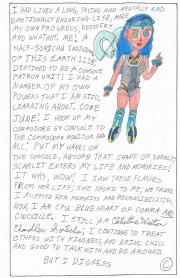 I HAD LIVED A LONG, TRYING AND MENTALLY AND
EMOTIONALLY ENDURING LIFE, MADE
MY OWN PROGRESS, RECOVERY
AND WHATNOT, ME! A
HALF-
OF THIS EARTH 1218,
DESTINED TO BE A CONSOLE
PATRON UNIT! I HAD A
NUMBER OF MY OWN
POWERS THAT I AM STILL
LEARNING ABOUT. COME
JUNE! I HOOK UP MY
COMMODORE 64 CONSOLE TO
THE COMMODORE MONITOR AND
ALL, PUT MY HANDS ON
THE CONSOLE, ABSORB THAT SHAPE OF ENERGY
SCARLET ENTERS MY LIFE AND MEMORIES!
IT WAS, WOW! I SAW THESE FLASHES
FROM HER LIFE; SHE SPOKE TO ME; WE
I ACCEPTED HER MEMORIES AND RESPONSIBILITIES,
NOW, I AM CPU BLUE HEART OF COMMA AND
I STILL AM
I CONTINUE TO TREAT
OTHERS WITH KINDNESS, AND BEING CHILL
AND GOOD TO TALK WITH AND BE AROUND.
BUT I DIGRESS
©